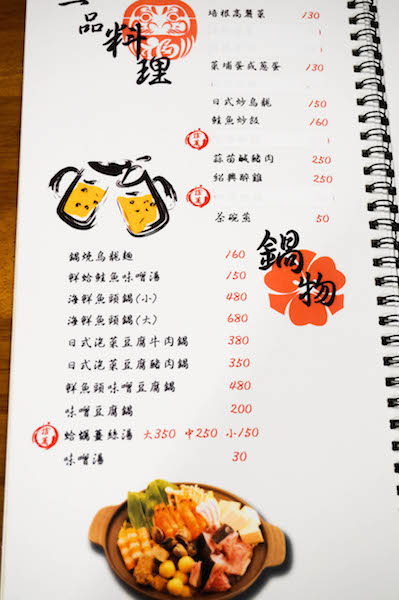 一品料理
培根高麗菜 130
菜埔蛋或蔥蛋 130
日式炒烏龍 150
鮭魚炒飯 160
蒜苗鹹豬肉 250
紹興醉雞 250
茶碗蒸 50
鍋物
鍋燒烏龍麵 160
鮮蛤鮭魚味噌湯 150
海鮮魚頭鍋(小) 480
海鮮魚頭鍋(大) 680
日式泡菜豆腐牛肉鍋 380
日式泡菜豆腐豬肉鍋 350
鮮魚頭味噌豆腐鍋 480
味噌豆腐鍋 200
蛤蠣薑絲湯 大350 中250 小150
味噌湯 30